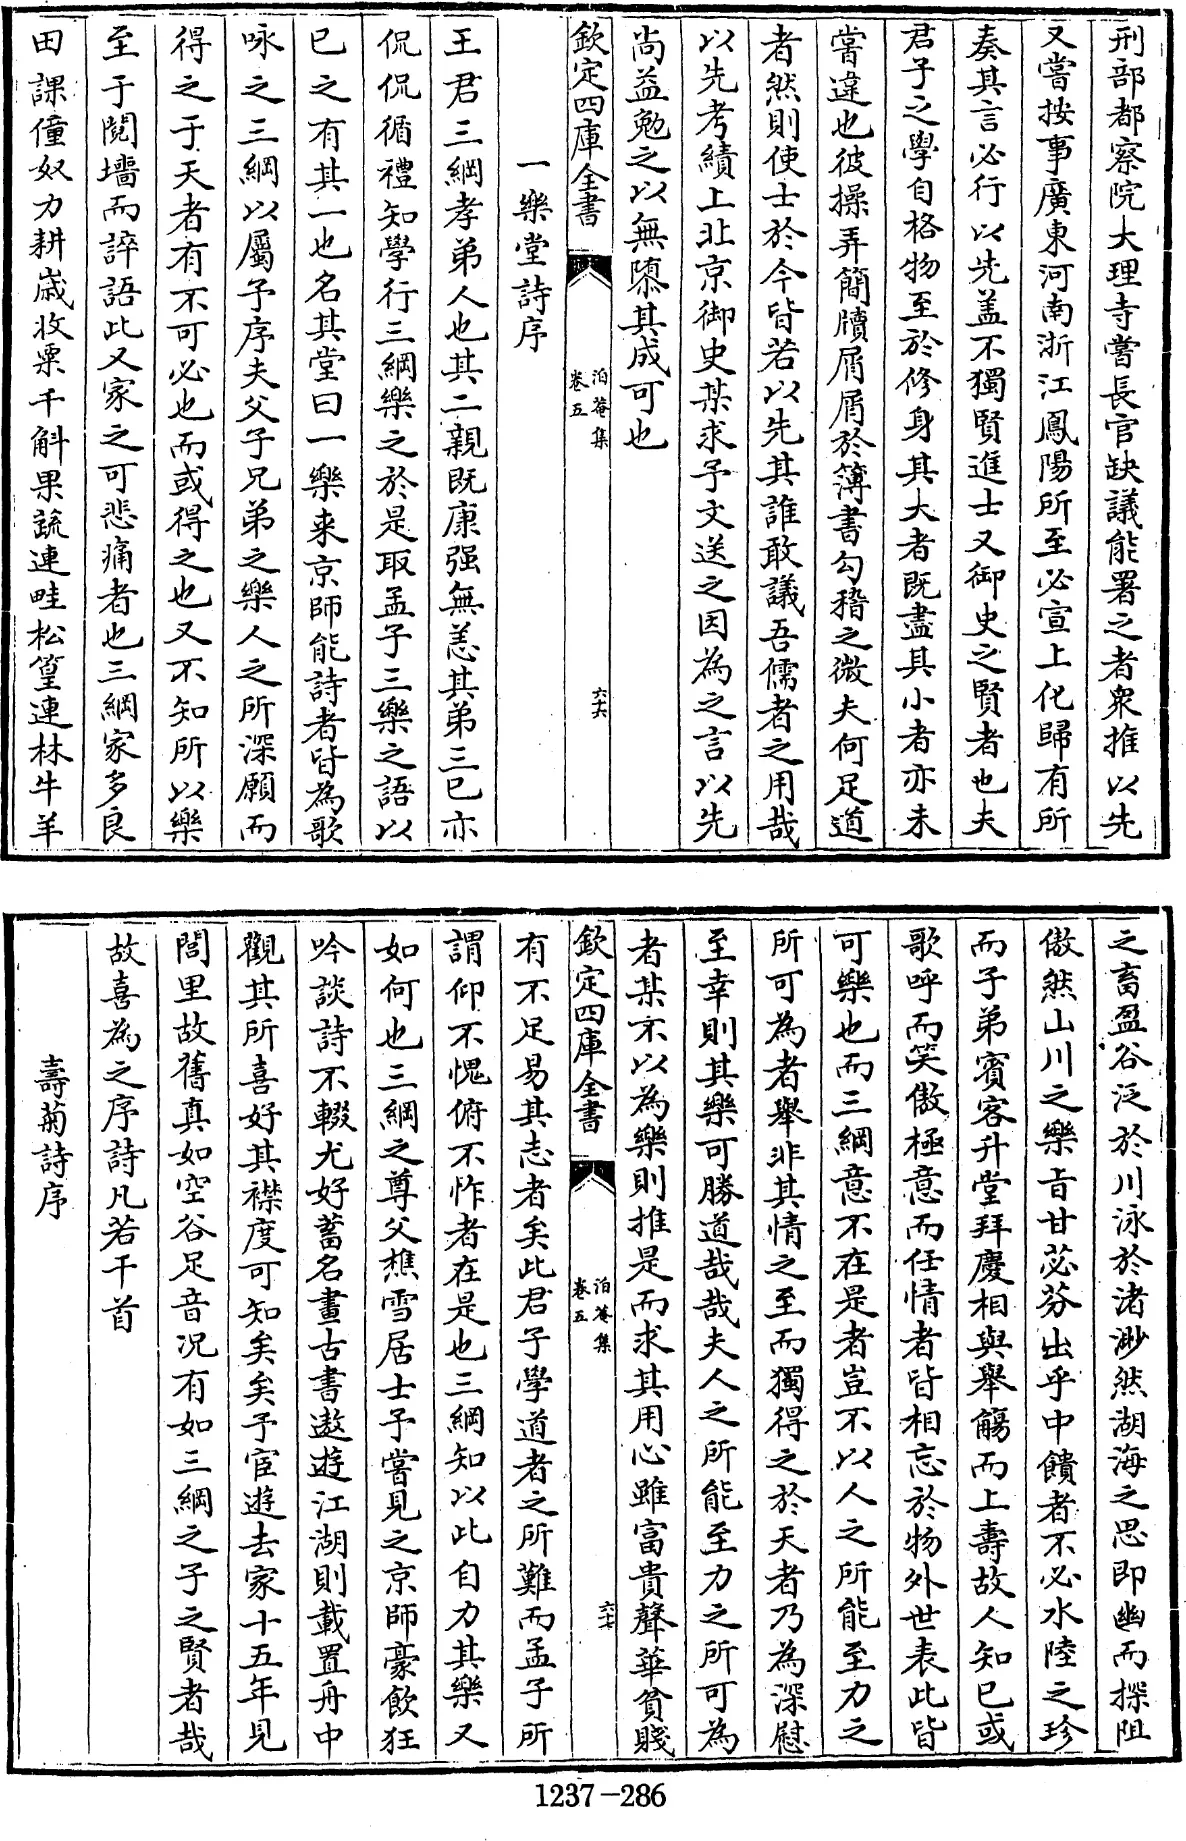 刑部都察院大理寺嘗長官缺議能署之者衆推以先
又嘗按事廣東河南浙江鳳陽所至必宣上化歸有所
奏其言必行以先盖不獨賢進士又御史之賢者也夫
君子之學自格物至於修身其大者既盡其小者亦未
嘗違也彼操弄簡牘屑屑於簿書勾稽之微夫何足道
者然則使士於今皆若以先其誰敢議吾儒者之用哉
以先考績上北京御史某求予文送之因為之言以先
尚益勉之以無隳其成可也
欽定四庫全書
泊菴集
卷五
六十六
一樂堂詩序
王君三綱孝弟人也其二親既康强無恙其弟三已亦
侃侃循禮知學行三綱樂之於是取孟子三樂之語以
已之有其一也名其堂曰一樂来京師能詩者皆為歌
咏之三綱以屬予序夫父子兄弟之樂人之所深願而
得之于天者有不可必也而或得之也又不知所以樂
至于䦧墻而誶語此又家之可悲痛者也三綱家多良
田課僮奴力耕歳收粟千斛果蔬連畦松篁連林牛羊
之畜盈谷泛於川泳於渚渺然湖海之思即幽而探阻
傲然山川之樂旨甘苾芬出乎中饋者不必水陸之珍
而子弟賓客升堂拜慶相與舉觴而上壽故人知已或
歌呼而笑傲極意而任情者皆相忘於物外世表此皆
可樂也而三綱意不在是者豈不以人之所能至力之
所可為者舉非其情之至而獨得之於天者乃為深慰
至幸則其樂可勝道哉哉夫人之所能至力之所可為
者某不以為樂則推是而求其用心雖富貴聲華貧賤
欽定四庫全書
泊菴集
卷五
六十七
有不足易其志者矣此君子學道者之所難而孟子所
謂仰不愧俯不怍者在是也三綱知以此自力其樂又
如何也三綱之尊父樵雪居士予嘗見之京師豪飲狂
吟談詩不輟尤好蓄名畫古書遨遊江湖則載置舟中
觀其所喜好其襟度可知矣矣予宦遊去家十五年見
閭里故舊真如空谷足音况有如三綱之子之賢者哉
故喜為之序詩凡若干首
壽菊詩序
1237-286